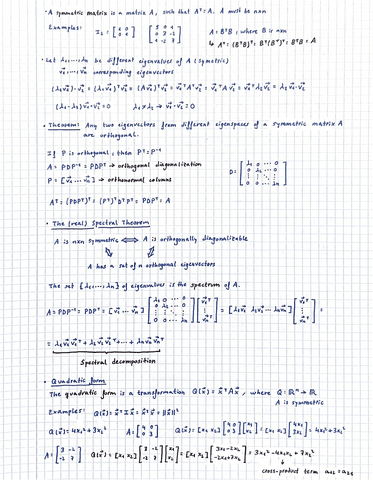 · A symmetric matrix is a matrix A, such that Aᵀ=A. A must be nxn
Examples: I₂= [1 0; 0 1] [5 0 1; 0 3 -2; 1 -2 7] A=BᵀB, where B is nxn
↳ Aᵀ=(BᵀB)ᵀ= Bᵀ(Bᵀ)ᵀ= BᵀB=A
· Let λ₁,...,λₙ be different eigenvalues of A (symetric)
v⃗₁,...,v⃗ₙ corresponding eigenvectors
(λ₁v⃗₁)·v⃗₂ = (λ₁v⃗₁)ᵀv⃗₂ = (Av⃗₁)ᵀv⃗₂ = v⃗₁ᵀAᵀv⃗₂ = v⃗₁ᵀAv⃗₂ = v⃗₁ᵀλ₂v⃗₂ = λ₂v⃗₁·v⃗₂
(λ₁-λ₂)v⃗₁·v⃗₂=0 λ₁≠λ₂ → v⃗₁·v⃗₂=0
· Theorem: Any two eigenvectors from different eigenspaces of a symmetric matrix A
are orthogonal.
If P is orthogonal, then Pᵀ=P⁻¹
A = PDP⁻¹ = PDPᵀ → orthogonal diagonalization
P = [v⃗₁ ... v⃗ₙ] → orthonormal columns
D= [λ₁ 0 ... 0; 0 λ₂ ... 0; ⋮ ⋮ ⋱ ⋮; 0 0 ... λₙ]
Aᵀ = (PDPᵀ)ᵀ = (Pᵀ)ᵀDᵀPᵀ = PDPᵀ = A
· The (real) Spectral Theorem
A is nxn symmetric ⟺ A is orthogonally diagonalizable
A has a set of n orthogonal eigenvectors
The set {λ₁,...,λₙ} of eigenvalues is the spectrum of A.
A = PDP⁻¹ = PDPᵀ = [v⃗₁ ... v⃗ₙ] [λ₁ 0 ... 0; 0 λ₂ ... 0; ⋮ ⋮ ⋱ ⋮; 0 0 ... λₙ] [v⃗₁ᵀ; v⃗₂ᵀ; ⋮; v⃗ₙᵀ] = [λ₁v⃗₁ λ₂v⃗₂ ... λₙv⃗ₙ] [v⃗₁ᵀ; ⋮; v⃗ₙᵀ] =
= λ₁v⃗₁v⃗₁ᵀ + λ₂v⃗₂v⃗₂ᵀ + ... + λₙv⃗ₙv⃗ₙᵀ
Spectral decomposition
· Quadratic form
The quadratic form is a transformation Q(x⃗) = x⃗ᵀAx⃗, where Q: ℝⁿ → ℝ
A is symmetric
Examples: Q(x⃗) = x⃗ᵀIx⃗ = x⃗ᵀx⃗ = ||x⃗||²
Q(x⃗) = 4x₁²+3x₂² A= [4 0; 0 3] Q(x⃗) = [x₁ x₂] [4 0; 0 3] [x₁; x₂] = [x₁ x₂] [4x₁; 3x₂] = 4x₁²+3x₂²
A= [3 -2; -2 7] Q(x⃗) = [x₁ x₂] [3 -2; -2 7] [x₁; x₂] = [x₁ x₂] [3x₁-2x₂; -2x₁+7x₂] = 3x₁²-4x₁x₂+7x₂²
cross-product term a₁₂=a₂₁